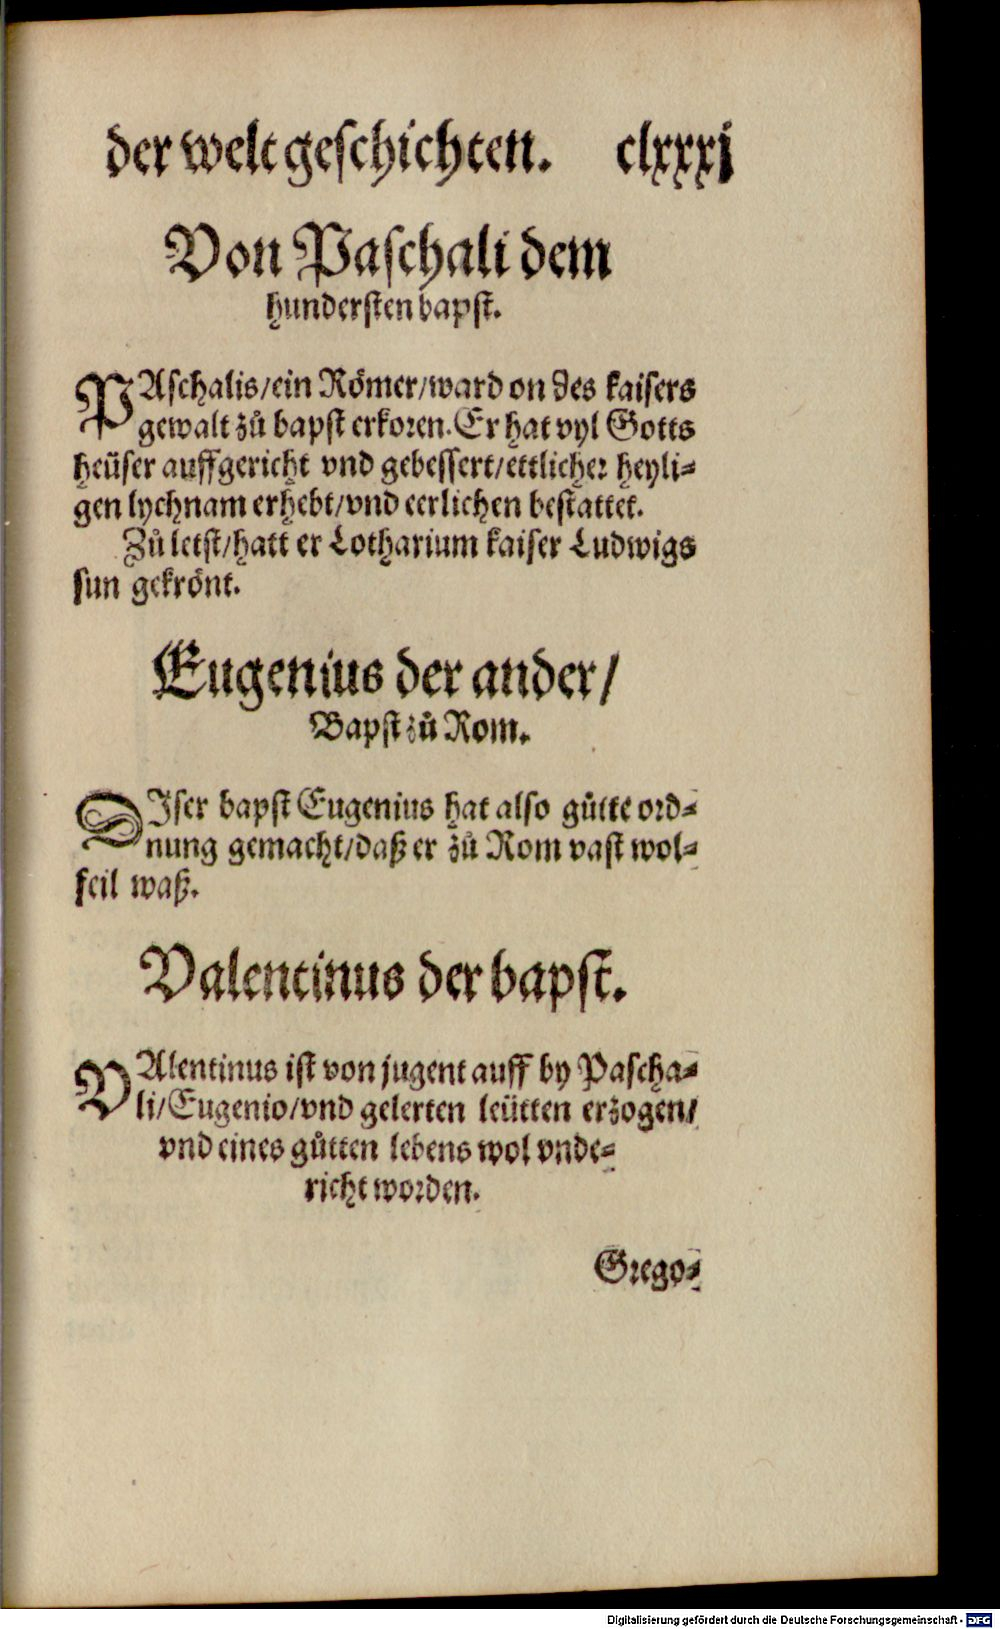 der welt geschichten. clxxxj
Von Paschali dem
hundersten bapst.
PAschalis/ein Römer/ward on des kaisers
gewalt zů bapst erkoren. Er hat vyl Gotts
heüser auffgericht vnd gebessert/ettlicher heyli⸗
gen lychnam erhebt/vnd eerlichen bestattet.
Zů letst/hatt er Lotharium kaiser Ludwigs
sun gekrönt.
Eugenius der ander/
Bapst zů Rom.
DIser bapst Eugenius hat also gůtte ord⸗
nung gemacht/daß er zů Rom vast wol⸗
feil waß.
Valentinus der bapst.
VAlentinus ist von jugent auff by Pascha⸗
li/Eugenio/vnd gelerten leütten erzogen/
vnd eines gůtten lebens wol vnde⸗
richt worden.
Grego⸗
Digitalisierung gefördert durch die Deutsche Forschungsgemeinschaft - DFG